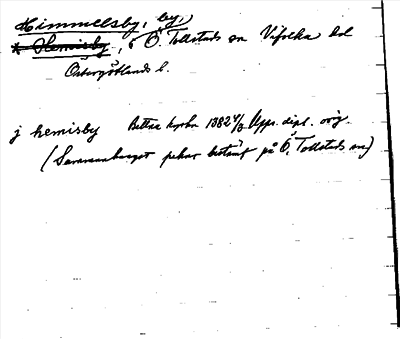 Himmelsby, by,
* Hemisby, i Ö. Tollstads sn Vifolka hd
Östergötlands l.
j hemisby Bettna kyrka 1382 4/3 Upps. dipl. orig.
(Sammanhanget pekar bestämt på Ö. Tollstads sn)